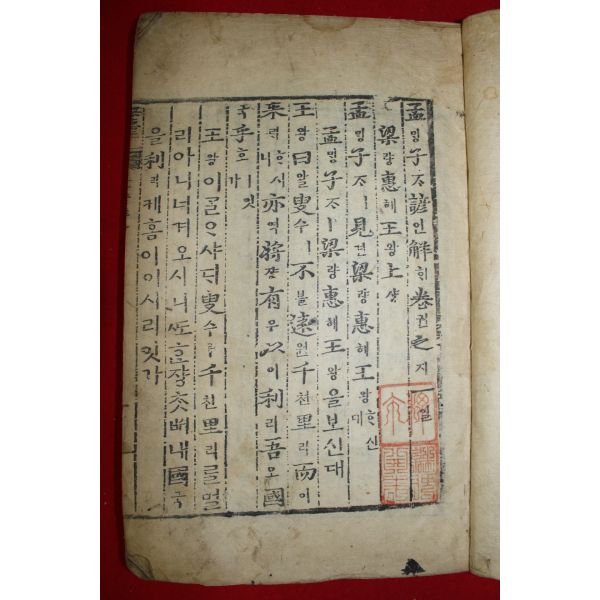 孟ᄆᆡᆼ子ᄌᆞ諺언解ᄒᆡ卷권之지一일
梁량惠혜王왕上샹
孟ᄆᆡᆼ子ᄌᆞㅣ見견梁량惠혜王왕ᄒᆞ신대
孟ᄆᆡᆼ子ᄌᆞㅣ梁량惠혜王왕을보신대
王왕曰왈叟수ㅣ不블遠원千천里리而이
來ᄅᆡᄒᆞ시니亦역將쟝有우以이利리吾오國
국乎호ㅣ잇가
王왕이ᄀᆞᆯᄋᆞ샤ᄃᆡ叟수ㅣ千천里리ᄅᆞᆯ멀
리아니너겨오시니ᄯᅩᄒᆞᆫ쟝ᄎᆞᆺᄡᅥ내國국
을利리케홈이이시리잇가